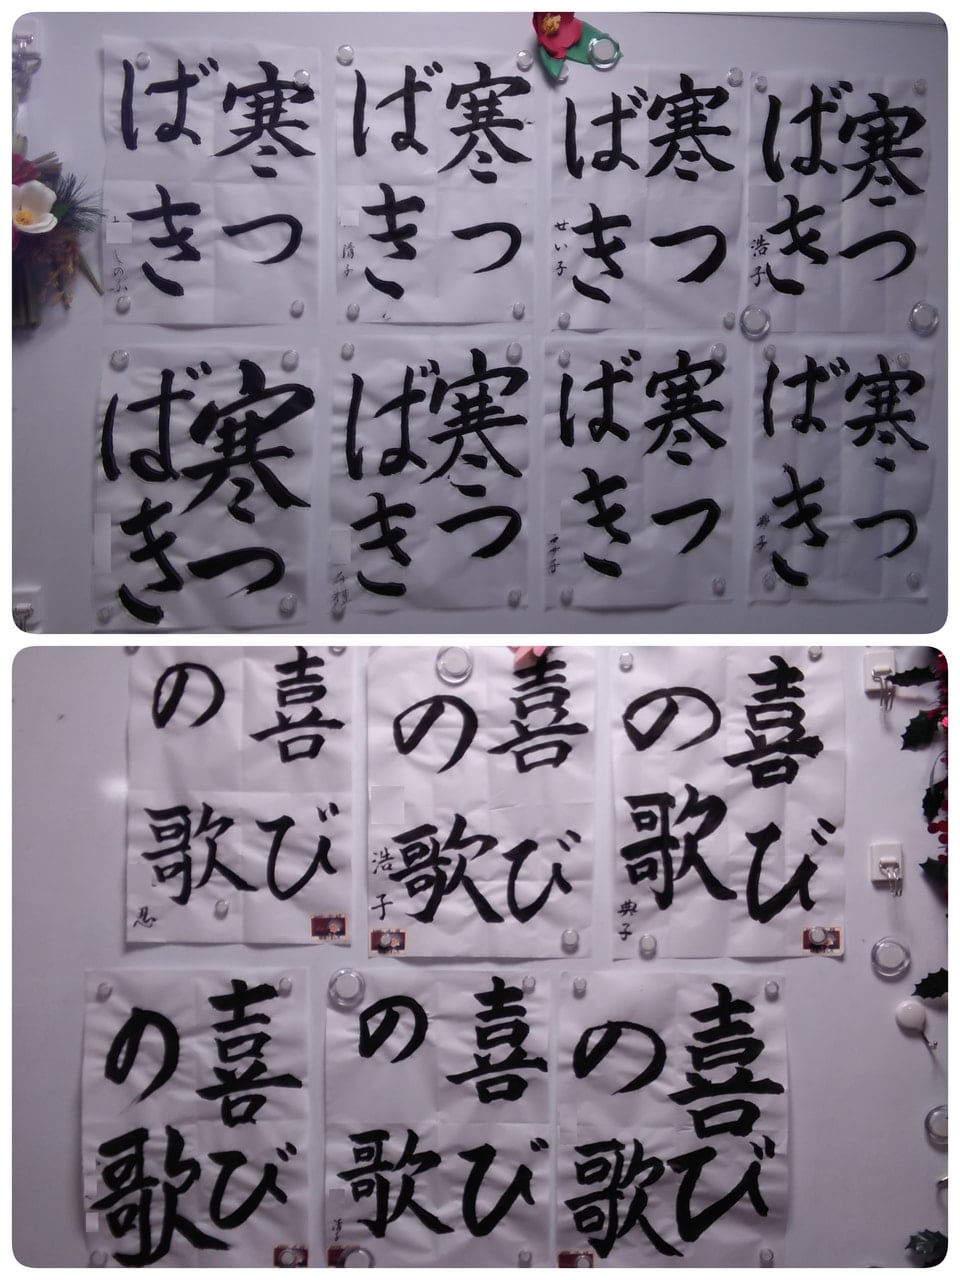 寒つ
ばき
しのぶ
寒つ
ばき
清子
寒つ
ばき
せい子
寒つ
ばき
浩子
寒つ
ばき
寒つ
ばき
寒つ
ばき
寒つ
ばき
典子
喜び
の歌
忍
喜び
の歌
浩子
喜び
の歌
典子
喜び
の歌
喜び
の歌
喜び
の歌